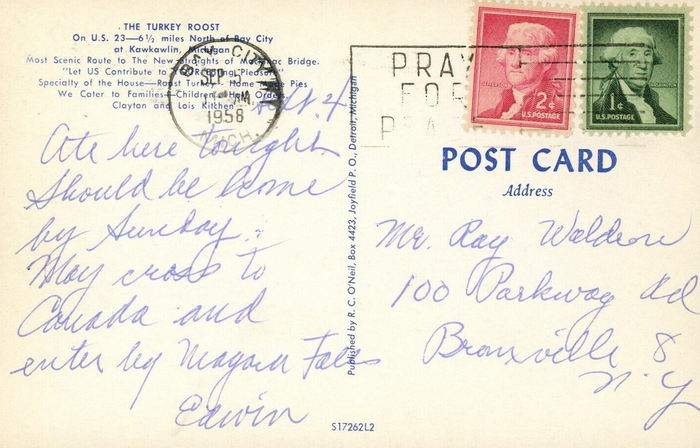 THE TURKEY ROOST
On U.S. 23—6½ miles North of Bay City
at Kawkawlin, Michigan
Most Scenic Route to The New Straights of Mackinac Bridge.
"Let US Contribute to Your Pleasure
Specialty of the House—Roast Turkey Home Pies
We Cater to Families—Children's Half Orders.
Clayton and Lois Kitchen
BAY CITY
SEP 5
AM
1958
MICH.
PRAY
FOR
JEFFERSON
2¢
U.S. POSTAGE
WASHINGTON
1¢
U.S. POSTAGE
Sept. 4
Ate here tonight.
Should be home
by Sunday.
May cross to
Canada and
enter by Niagara Falls
Edwin
Published by R. C. O'Neil, Box 4423, Joyfield P. O., Detroit, Michigan
POST CARD
Address
Mr. Ray Waldron
100 Parkway Rd
Bronxville 8
N.Y
S17262L2